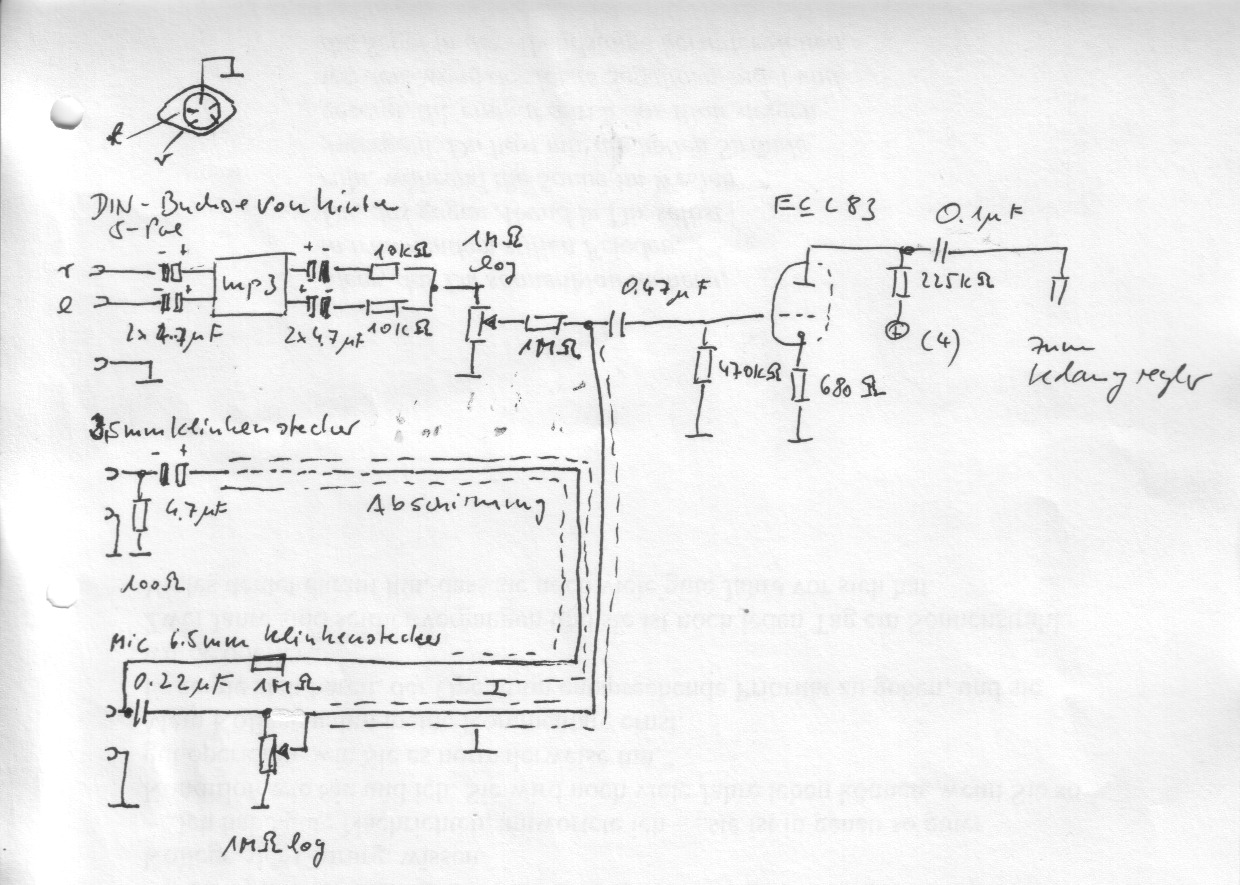 l
r
DIN-Buchse von hinten
5-Pol
ECC83
0.1µF
1MΩ
log
r
+
-
+
10kΩ
mp3
0,47µF
225kΩ
l
-
+
2x 4.7µF
2x 4,7µF
10kΩ
1MΩ
+ (4)
zum
Klangregler
470kΩ
680Ω
3,5mm klinkenstecker
-
+
4.7µF
Abschirmung
100Ω
Mic 6.5mm Klinkenstecker
0.22µF
1MΩ
1MΩ log